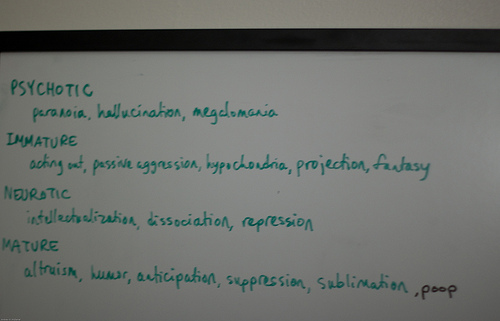 PSYCHOTIC
paranoia, hallucination, megalomania
IMMATURE
acting out, passive aggression, hypochondria, projection, fantasy
NEUROTIC
intellectualization, dissociation, repression
MATURE
altruism, humor, anticipation, suppression, sublimation, poop